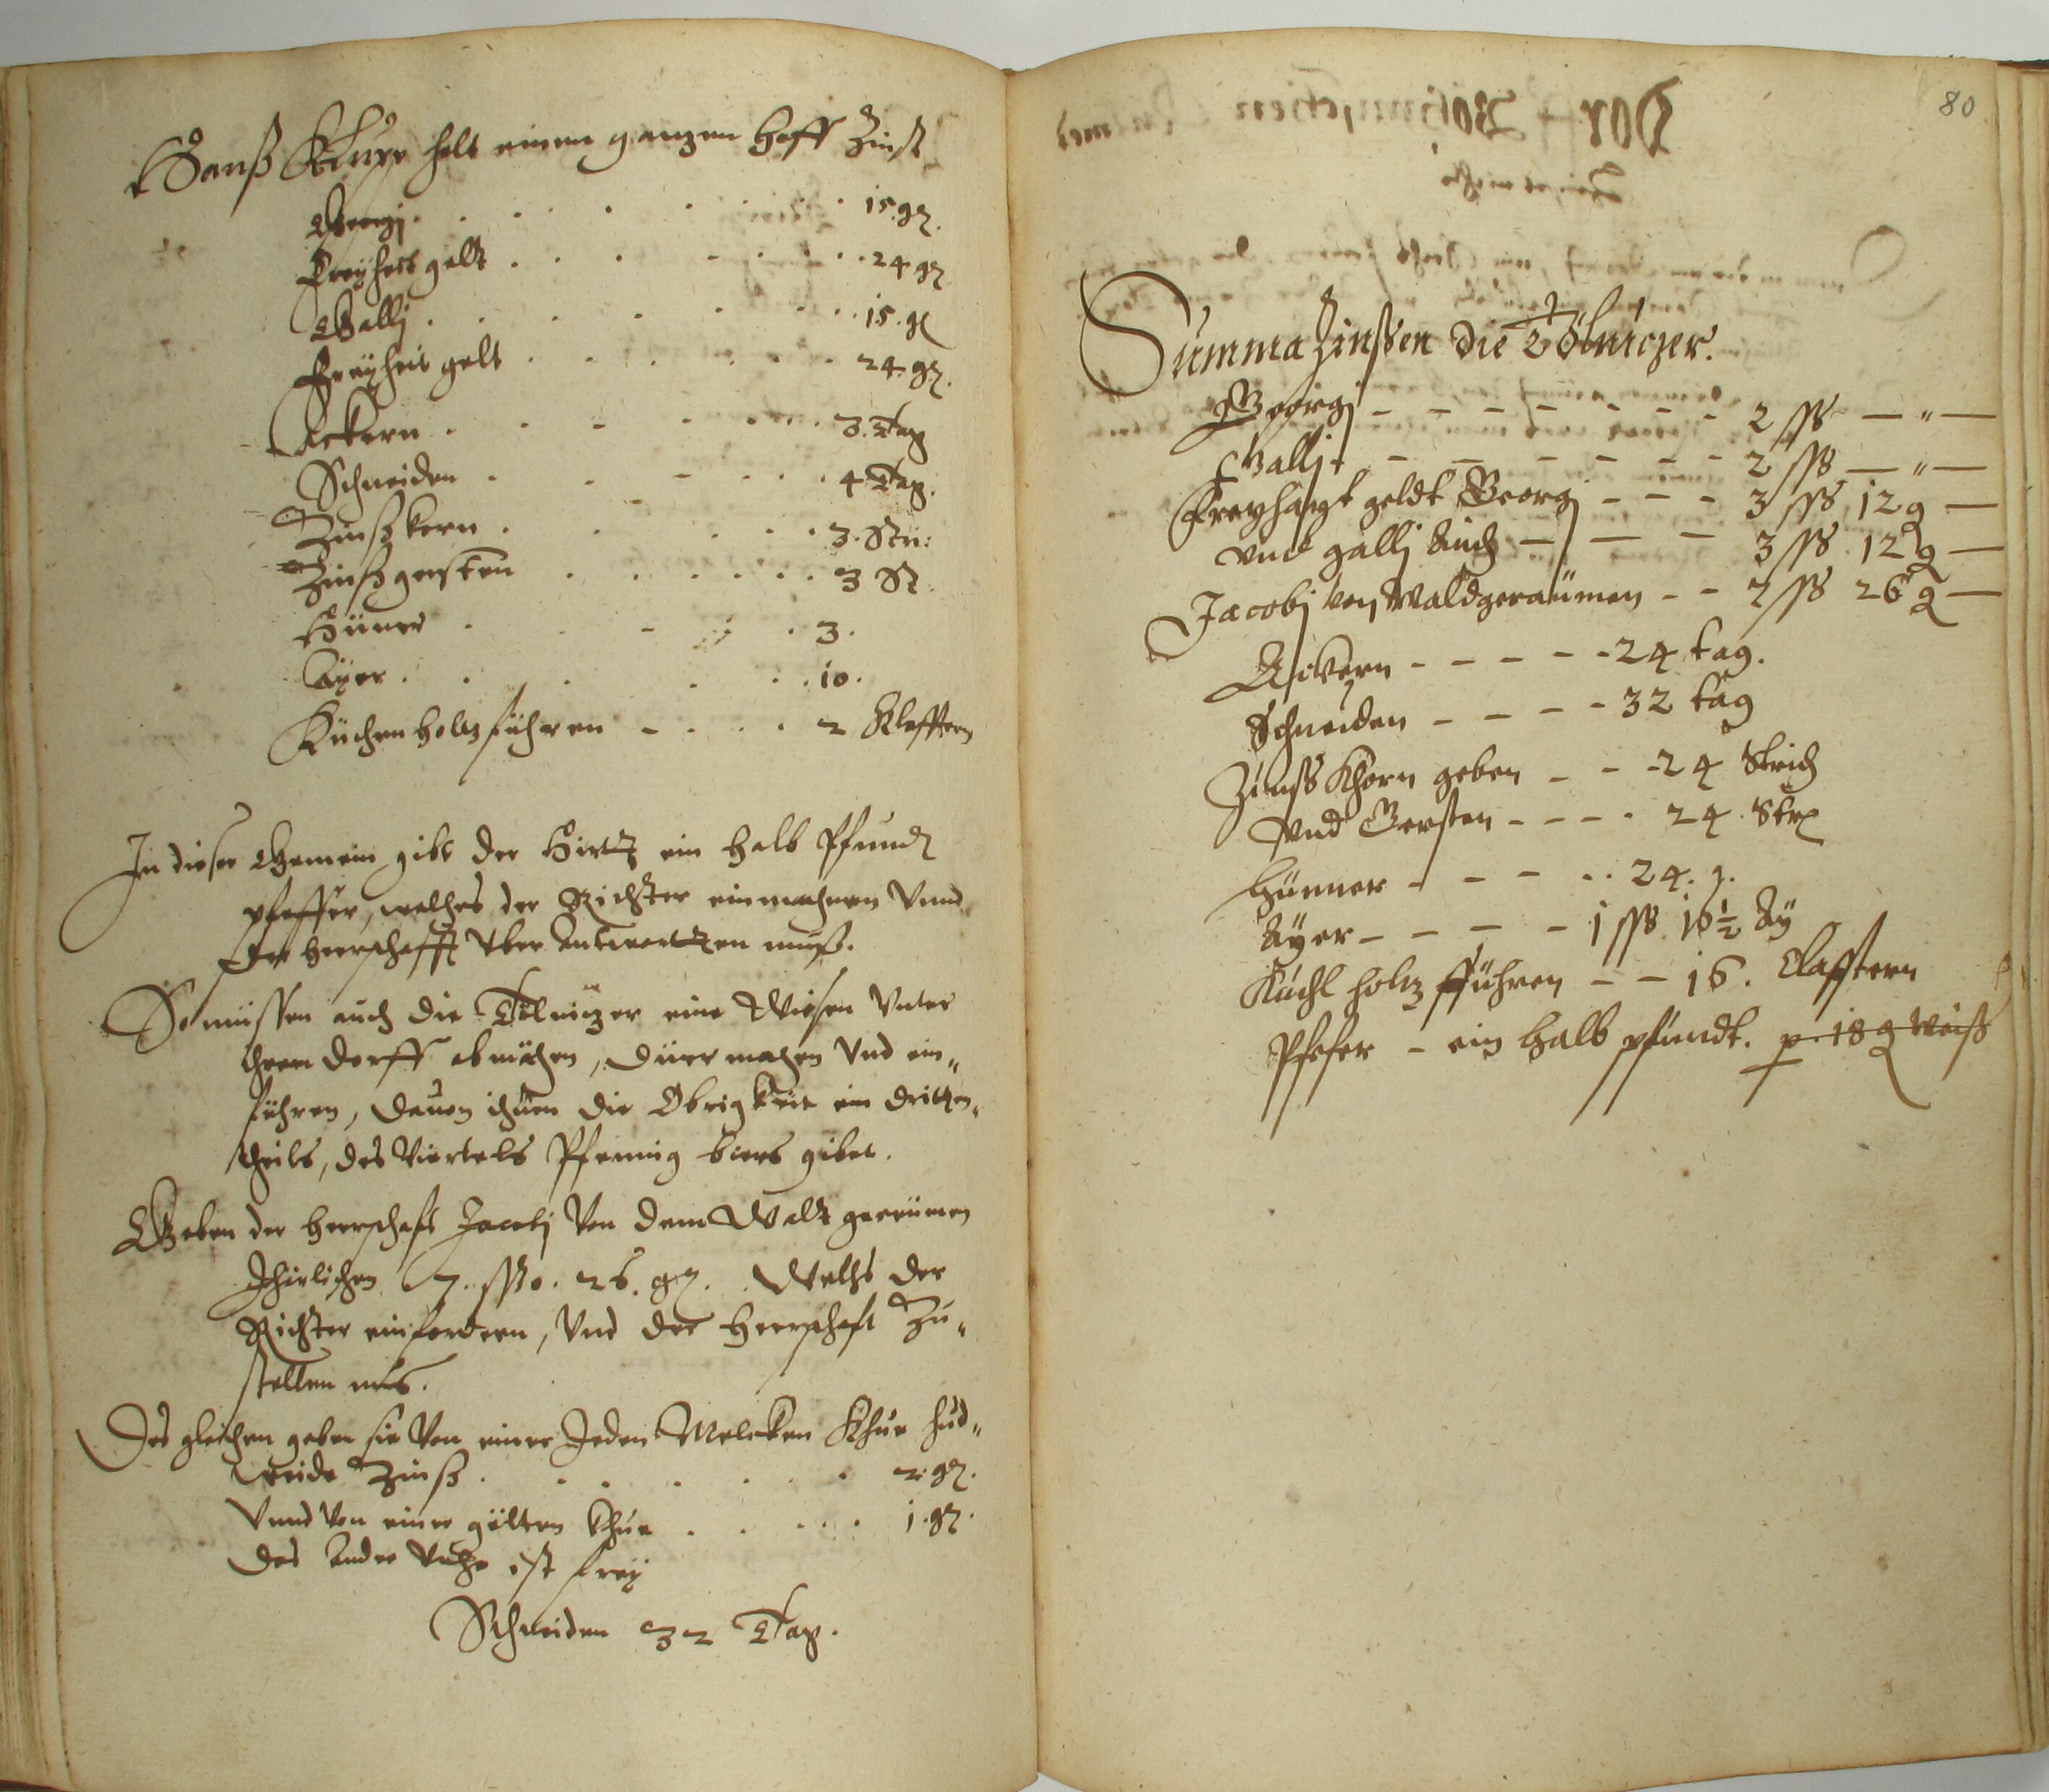 Hanß Kluge helt einen ganzen Hoff Zinst
Georgj . . . . . . . . 15. gr.
Freyheit gelt . . . . . . . 24. gr
Gallj . . . . . . . 15. gr
Freyheit gelt . . . . . . . 24. gr.
Ackern . . . . . . . 3. Tag
Schneiden . . . . . . 4 Tag.
Zinßkorn . . . . . . 3. Str:
Zinßgersten . . . . . . 3 Str.
Hüner . . . . . 3.
Ayer . . . . . . 10.
Küchen holtz führen - . . . 2 Klafftern
In dieser Gemein gibt der Hirtt ein halb Pfundt
pfeffer, welches der Richter einmahnen Vnnd
der herrschafft Vber Antwortten muß.
So müssen auch die Telnitzer eine Wiesen Vnter
ihren dorff abmähen, dürr machen Vnd ein„
führen, dauon ihnen die Obrigkeit ein dritten„
theils, des Viertels Pfennig biers gibet.
Geben der herrschaft Jacobj Von dem Waldt gereumen
Jhärlichen 7. sso. 26. gr. Welchs der
Richter einfordern, Vnd der herrschaft Zu„
stellen mus.
Des gleichen geben sie Von einer Jeden Melcken Khue hud„
weide Zinß . . . . . . . 2. gr.
Vnnd Von einer gölten Khue . . . . . 1. gr.
das Ander Viche ist frey
Schneiden 32 Tag.
80
Summa Zinssen die Tölniczer.
Georgj - - - - - - - 2 ss — „ —
Gallj - - - - - - - 2 ss — „ —
Freyhaytgeldt Georgj - - - 3 ss 12 g —
vnd gallj Auch — — — 3 ss 12 g —
Jacobj von Waldgeraümen - - 7 ss 26 g —
Ackern - - - - - 24 tag.
Schneiden - - - - 32 tag
Zinss Khorn geben - - - 24 Strich
Vnd Gersten - - - - 24. Str
hünner - - - - . . 24. .
Ayer - - - - 1 ss 10 ½ Ay
Kuchl holtz führen - - 16. Claftern
Pfefer - ein halb pfundt. p. 18 g weiß